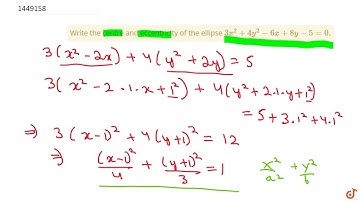 1449158
Write the centre and eccentricity of the ellipse 3x² + 4y² − 6x + 8y − 5 = 0.
3(x² − 2x) + 4(y² + 2y) = 5
3(x² − 2·1·x + 1²) + 4(y² + 2·1·y + 1²)
= 5 + 3·1² + 4·1²
⇒ 3(x−1)² + 4(y+1)² = 12
⇒ (x−1)²/4 + (y+1)²/3 = 1
x²/a² + y²/b